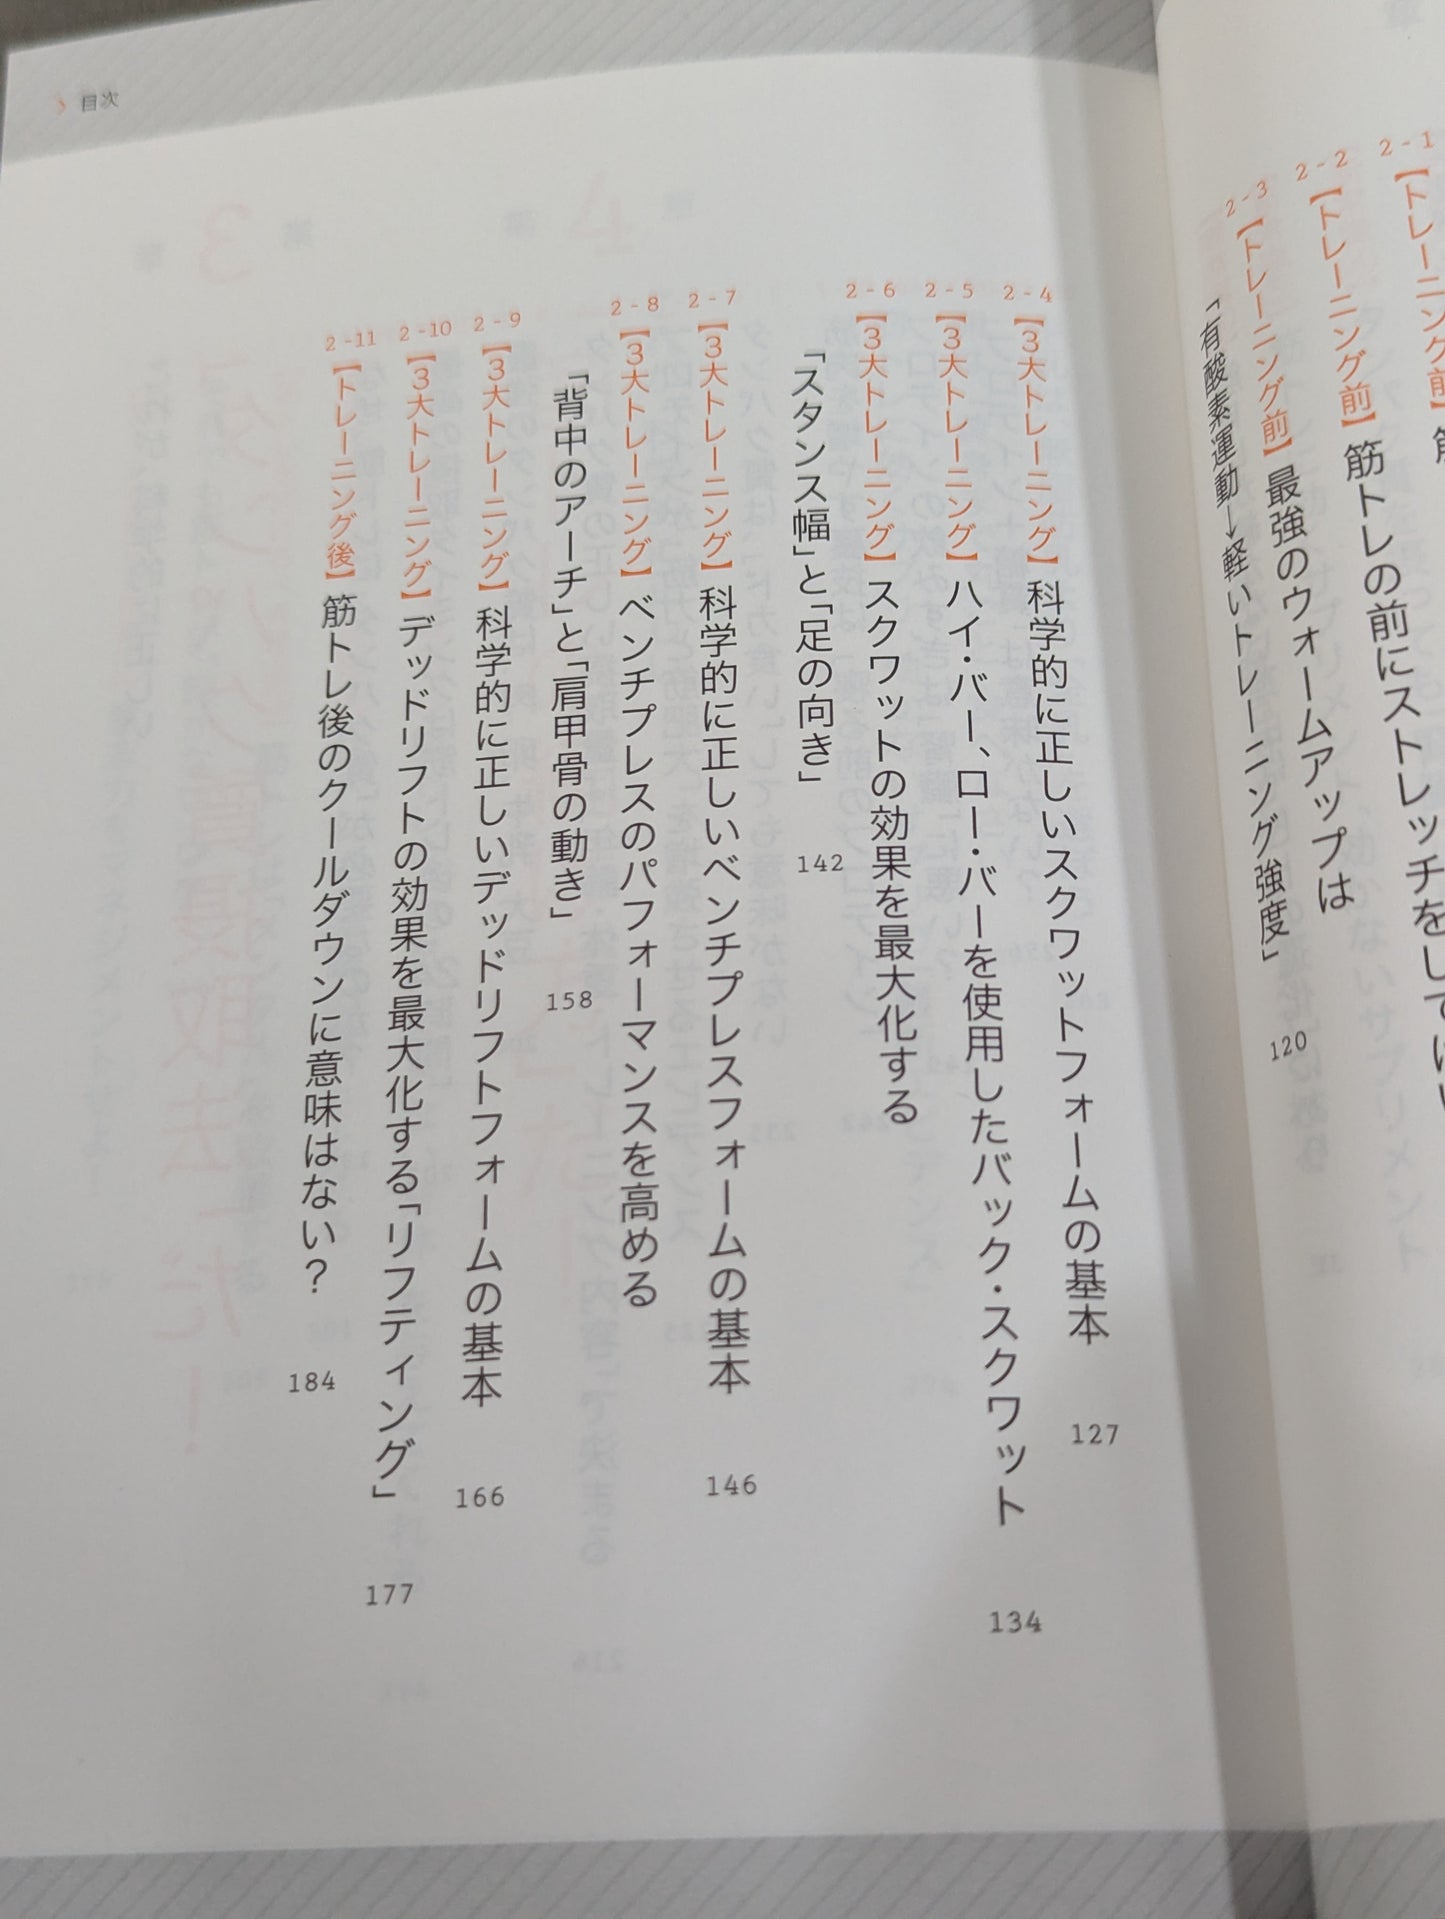 目次
2-1
【トレーニング前】
2-2
【トレーニング前】筋トレの前にストレッチをして
2-3
【トレーニング前】最強のウォームアップは
「有酸素運動→軽いトレーニング強度」
120
2-4
【3大トレーニング】科学的に正しいスクワットフォームの基本
127
2-5
【3大トレーニング】ハイ・バー、ロー・バーを使用したバック・スクワット
134
2-6
【3大トレーニング】スクワットの効果を最大化する
「スタンス幅」と「足の向き」
142
2-7
【3大トレーニング】科学的に正しいベンチプレスフォームの基本
146
2-8
【3大トレーニング】ベンチプレスのパフォーマンスを高める
「背中のアーチ」と「肩甲骨の動き」
158
2-9
【3大トレーニング】科学的に正しいデッドリフトフォームの基本
166
2-10
【3大トレーニング】デッドリフトの効果を最大化する「リフティング」
177
2-11
【トレーニング後】筋トレ後のクールダウンに意味はない？
184